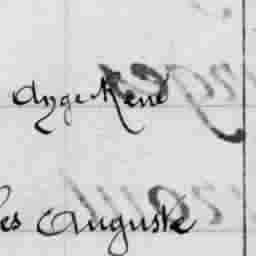 Ange René
es Auguste